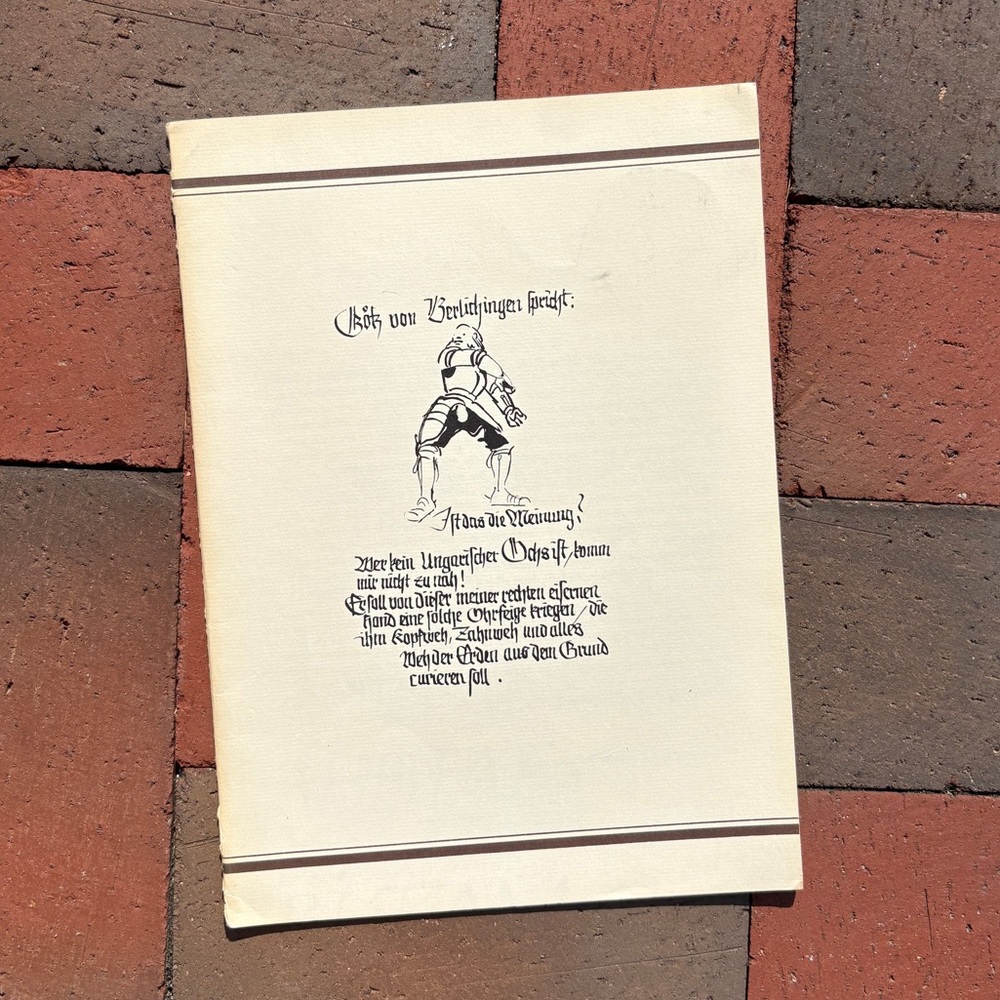 Götz von Berlichingen spricht:
Ist das die Meinung?
Wer kein Ungarischer Ochs ist, komm
mir nicht zu nah!
Er soll von dieser meiner rechten eisernen
Hand eine solche Ohrfeige kriegen, die
ihm Kopfweh, Zahnweh und alles
Weh der Erden aus dem Grund
curieren soll.